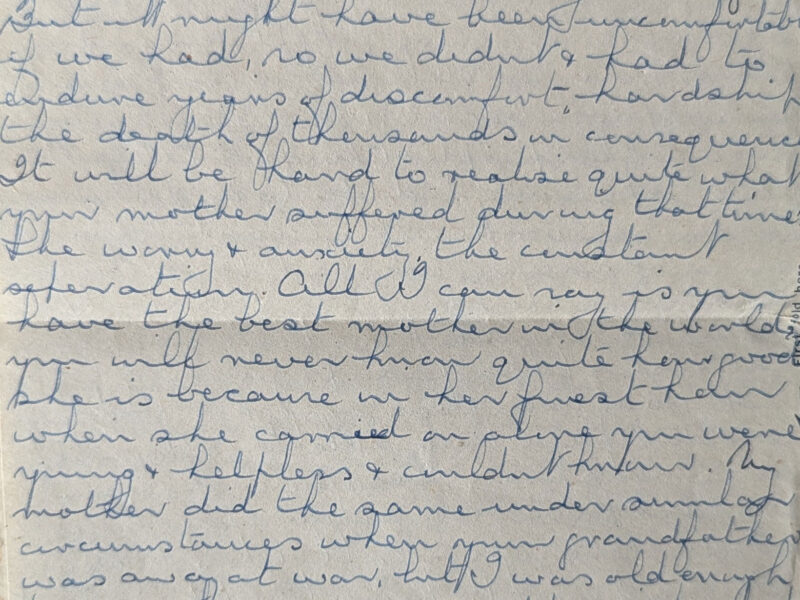 But it might have been uncomfortab
if we had, so we didn't & had to
endure years of discomfort, hardship
the death of thousands in consequenc
It will be hard to realise quite what
your mother suffered during that time
the worry & anxiety, the constant
seperation. All I can say is you
have the best mother in the world
you will never know quite how good
she is because in her finest hour
when she carried on alone you were
young & helpless & couldn't know. My
mother did the same under similar
circumstances when your grandfather
was away at war, but I was old enough